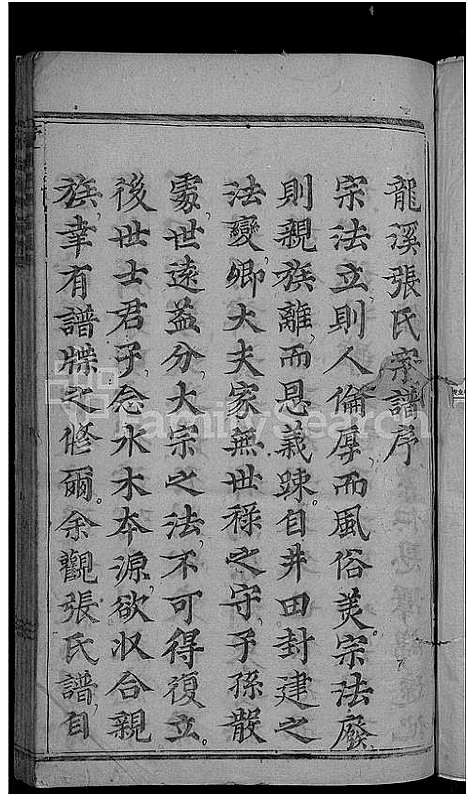 龍溪張氏宗譜序
宗法立則人倫厚而風俗美宗法廢
則親族離而恩義踈自井田封建之
法變卿大夫家無世祿之守子孫散
處世遠益分大宗之法不可得復立
後世士君子念水木本源欲收合親
族聿有譜牒之修爾余觀張氏譜自
FamilySearch